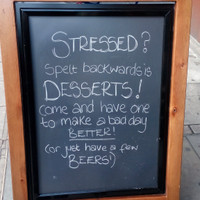 STRESSED?
Spelt backwards is
DESSERTS!
Come and have one
to make a bad day
BETTER!
(or just have a few
BEERS!)